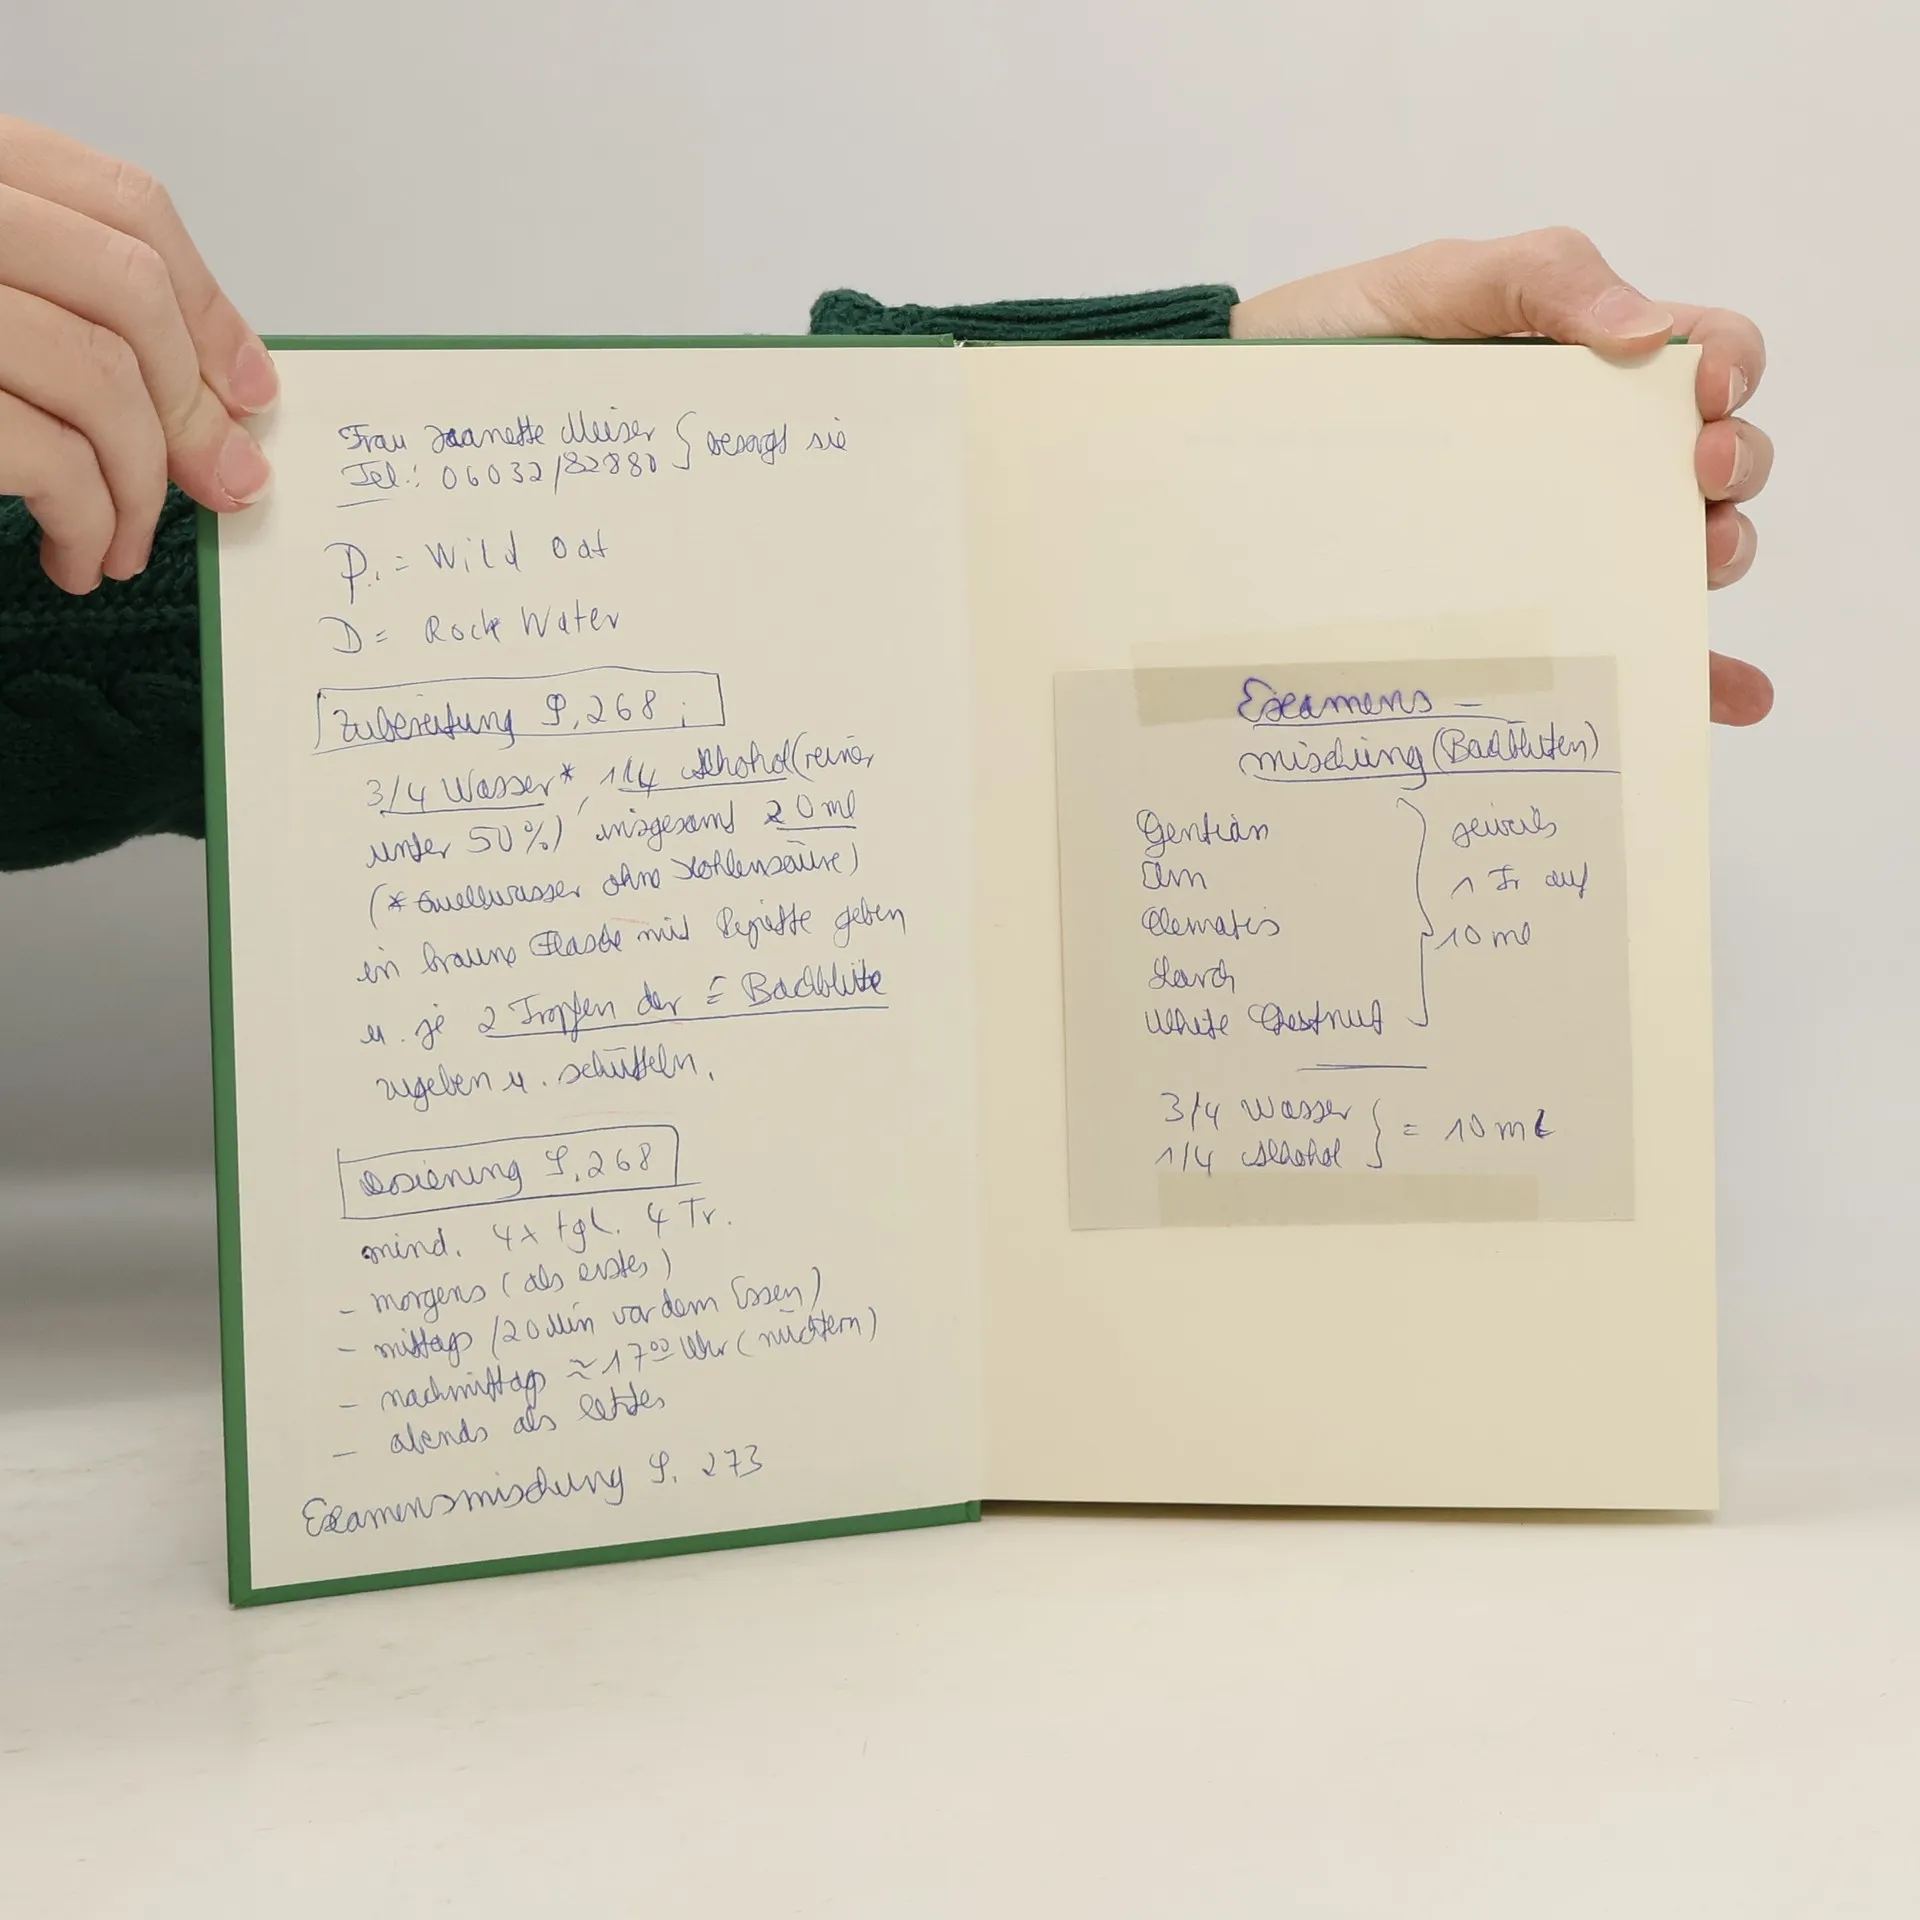 Frau Jeanette Meiser } besorgt sie
Tel.: 06032/82880
P. = Wild Oat
D = Rock Water
Zubereitung S. 268:
3/4 Wasser*, 1/4 Alkohol (reiner
unter 50%) insgesamt 20 ml
(* Quellwasser ohne Kohlensäure)
in braune Flasche mit Pipette geben
u. je 2 Tropfen der = Bachblüte
zugeben u. schütteln.
Dosierung S. 268
mind. 4x tgl. 4 Tr.
- morgens (als erstes)
- mittags (20 Min vor dem Essen)
- nachmittags ≈ 17°° Uhr (nüchtern)
- abends als letztes
Examensmischung S. 273
Examens-
mischung (Bachblüten)
Gentian } jeweils
Elm 1 Tr auf
Clematis 10 ml
Larch
White Chestnut
3/4 Wasser } = 10 ml
1/4 Alkohol